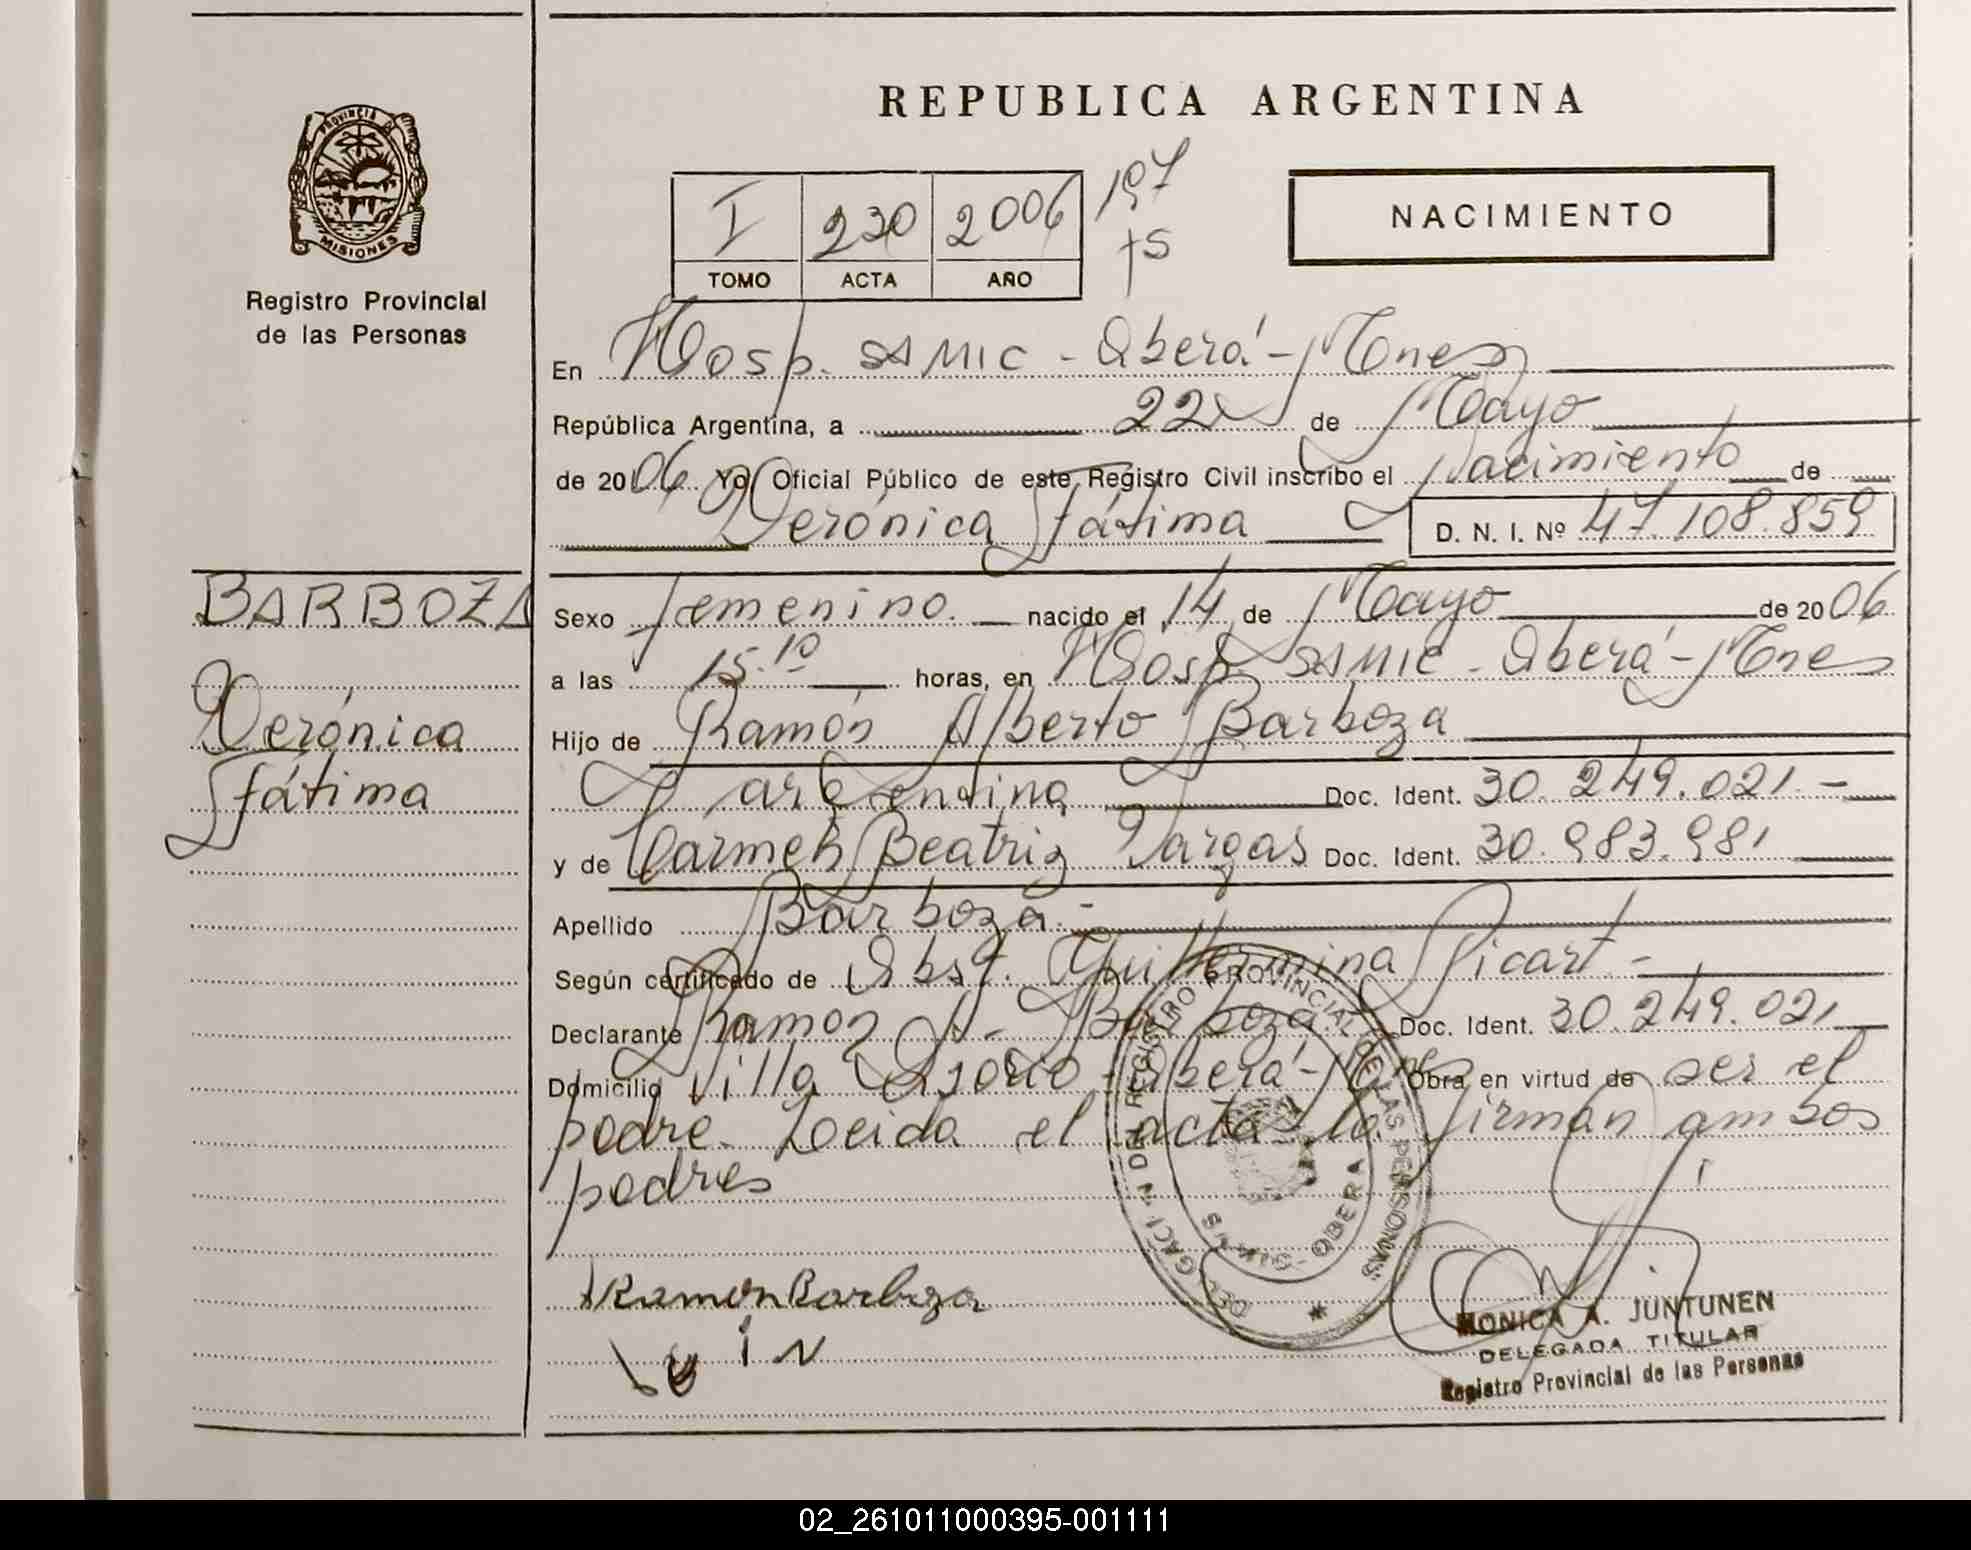 REPUBLICA ARGENTINA
PROVINCIA DE
MISIONES
Registro Provincial
de las Personas
I 230 2006 197
TOMO ACTA AÑO ts
NACIMIENTO
En Hosp. SAMIC - Oberá - Mnes
República Argentina, a 22 de Mayo
de 2006 Yo Oficial Público de este Registro Civil inscribo el Nacimiento de
Verónica Fátima D. N. I. Nº 47.108.859
BARBOZA
Verónica
Fátima
Sexo femenino. nacido el 14 de Mayo de 2006
a las 15.10 horas, en Hosp. SAMIC - Oberá - Mnes
Hijo de Ramón Alberto Barboza
argentina Doc. Ident. 30.249.021.-
y de Carmen Beatriz Vargas Doc. Ident. 30.983.981
Apellido Barboza.-
Según certificado de Obst. Guillermina Picart -
Declarante Ramon A. Barboza Doc. Ident. 30.249.021
Domicilio Villa Osorio - Oberá - Mnes Obra en virtud de ser el
padre. Leida el acta la firman ambos
padres
DELEGACION DEL REGISTRO PROVINCIAL DE LAS PERSONAS
OBERA
Ramon Barboza
MONICA A. JUNTUNEN
DELEGADA TITULAR
Registro Provincial de las Personas
02_261011000395-001111